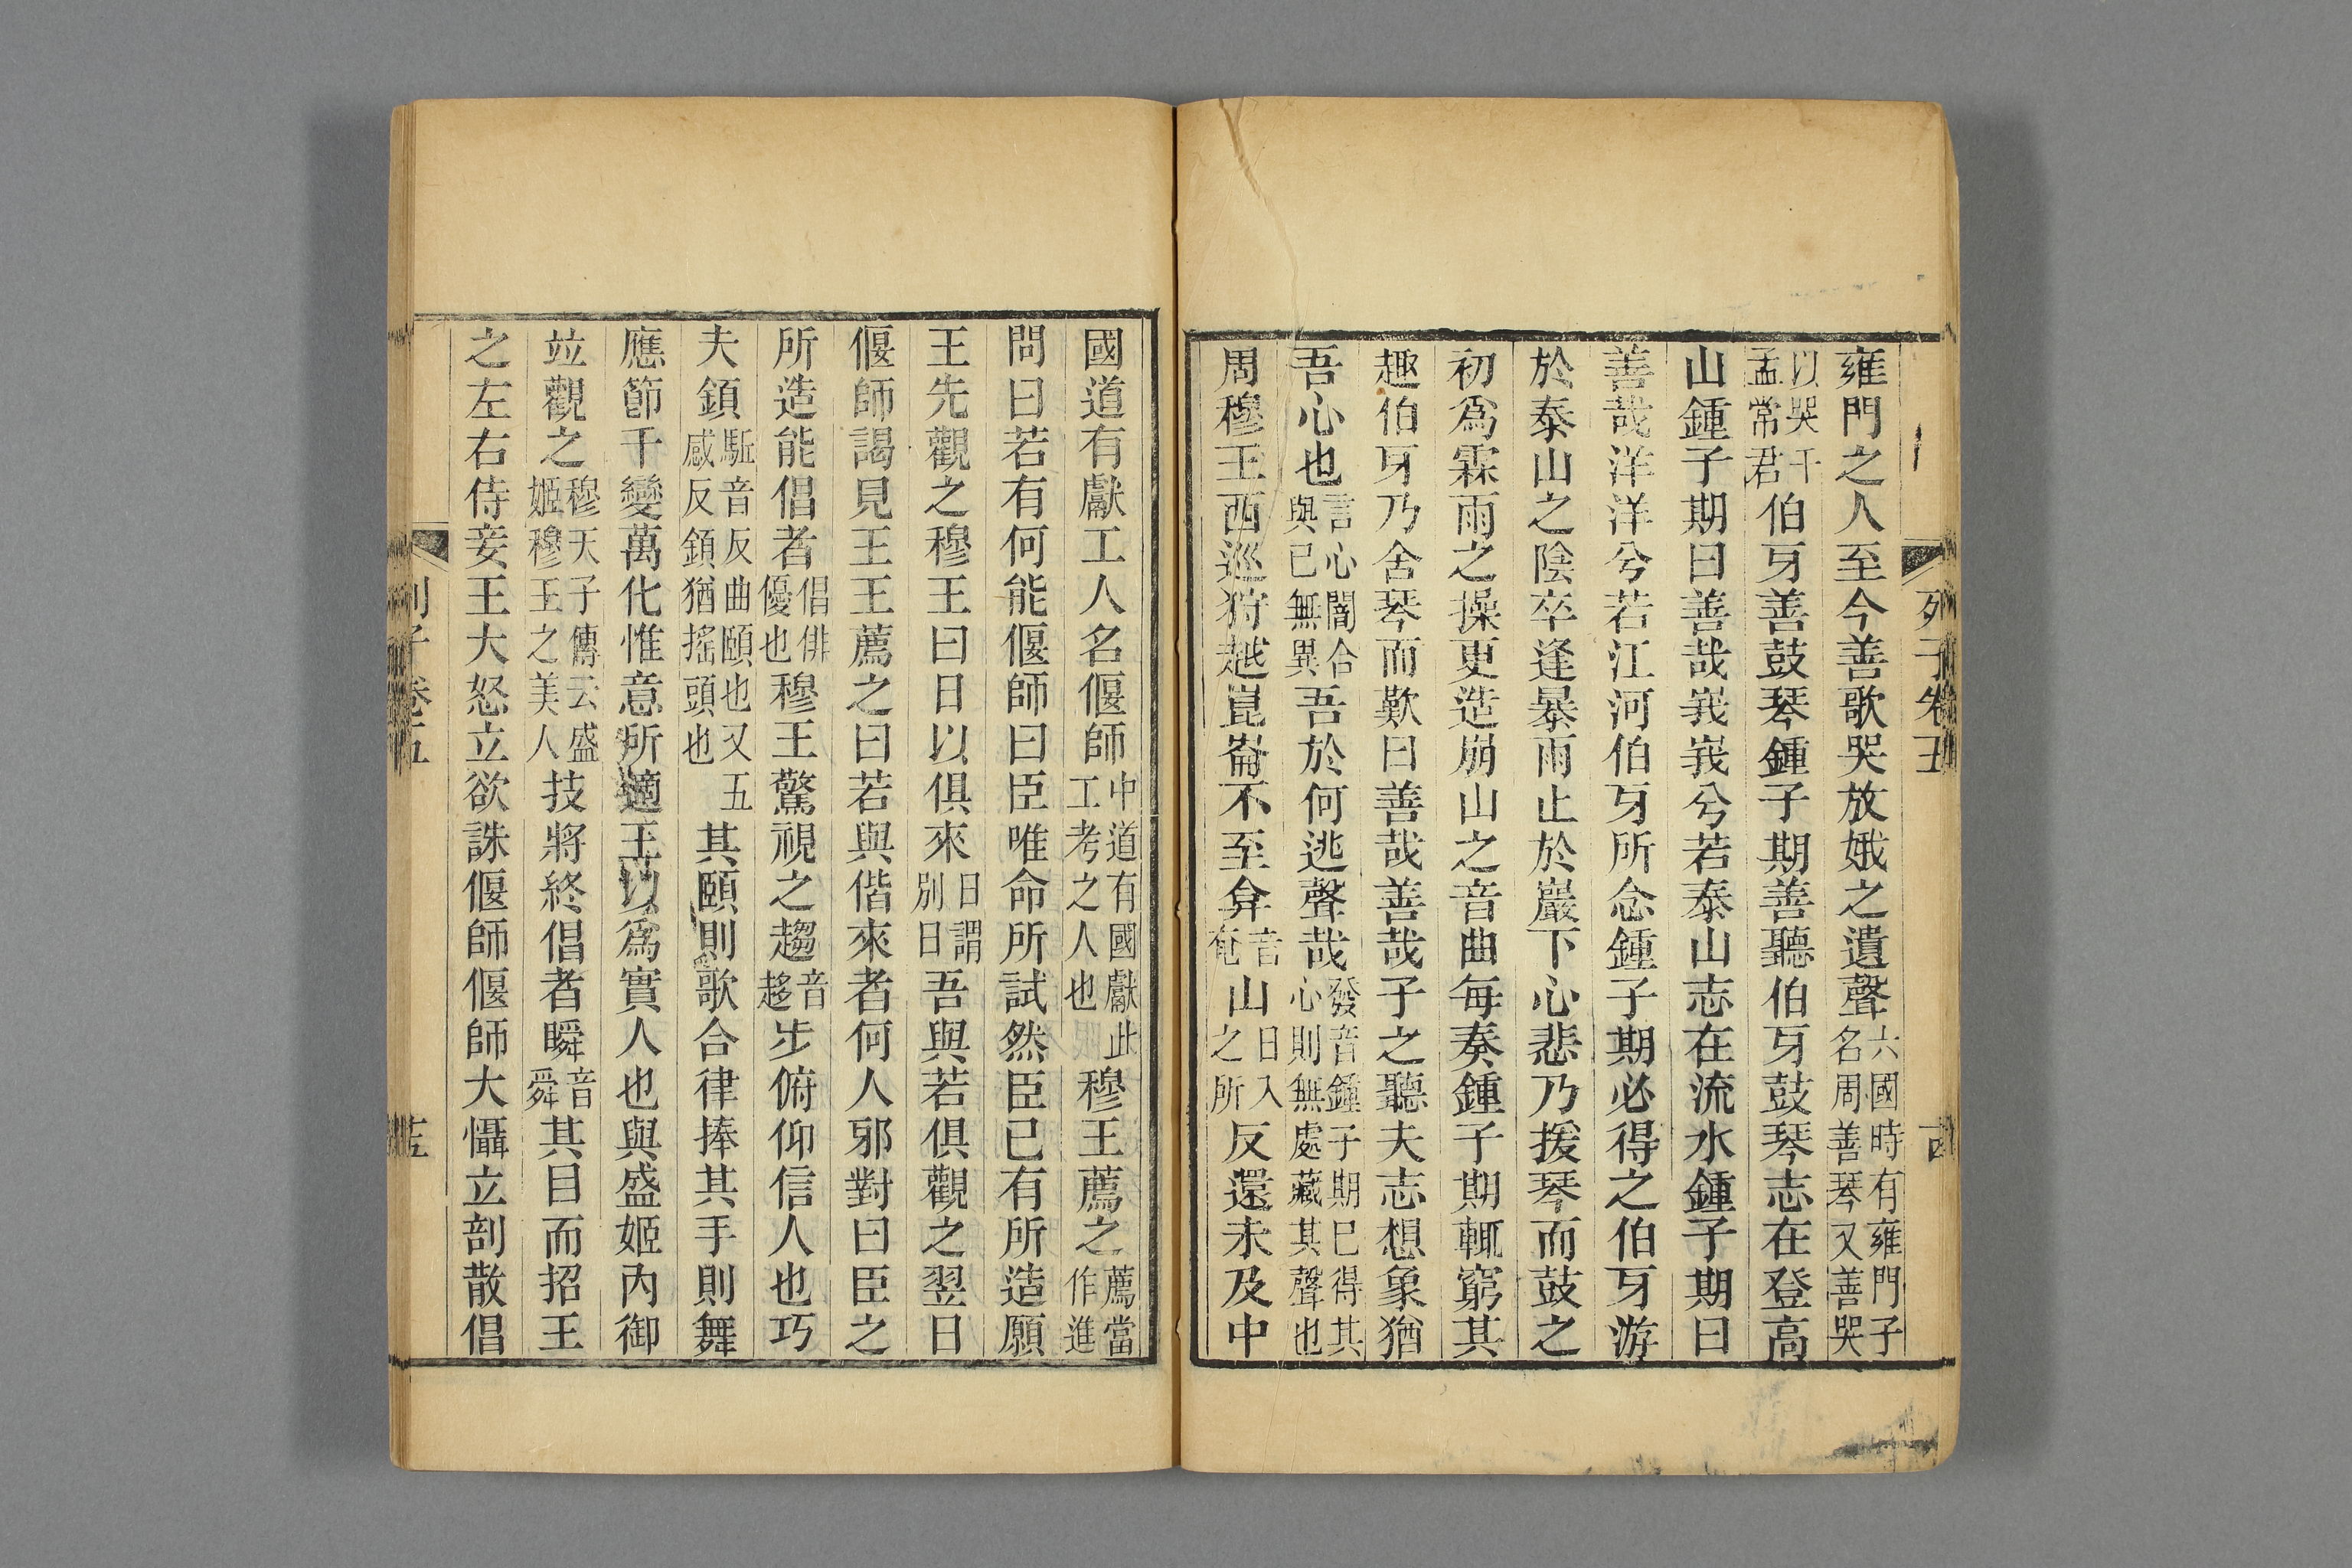 雍門之人至今善歌哭放娥之遺聲六國時有雍門子名周善琴又善哭
以哭干孟常君伯牙善鼓琴鍾子期善聽伯牙鼓琴志在登高
山鍾子期曰善哉峩峩兮若泰山志在流水鍾子期曰
善哉洋洋兮若江河伯牙所念鍾子期必得之伯牙游
於泰山之陰卒逢暴雨止於巖下心悲乃援琴而鼓之
初爲霖雨之操更造崩山之音曲每奏鍾子期輒窮其
趣伯牙乃舍琴而歎曰善哉善哉子之聽夫志想象猶
吾心也言心闇合與已無異吾於何逃聲哉發音鍾子期巳得其心則無處藏其聲也
周穆王西巡狩越崑崙不至弇音奄山日入之所反還未及中
列子卷五
國道有獻工人名偃師中道有國獻此工考之人也穆王薦之薦當作進
問曰若有何能偃師曰臣唯命所試然臣已有所造願
王先觀之穆王曰日以俱來日謂別日吾與若俱觀之翌日
偃師謁見王王薦之曰若與偕來者何人邪對曰臣之
所造能倡者倡俳優也穆王驚視之趨音趍步俯仰信人也巧
夫鎮駈音反曲頤也又五感反鎮猶搖頭也其頤則歌合律捧其手則舞
應節千變萬化惟意所適王以爲實人也與盛姬內御
竝觀之穆天子傳云盛姬穆王之美人技將終倡者瞬音舜其目而招王
之左右侍妾王大怒立欲誅偃師偃師大懾立剖散倡
列子卷五